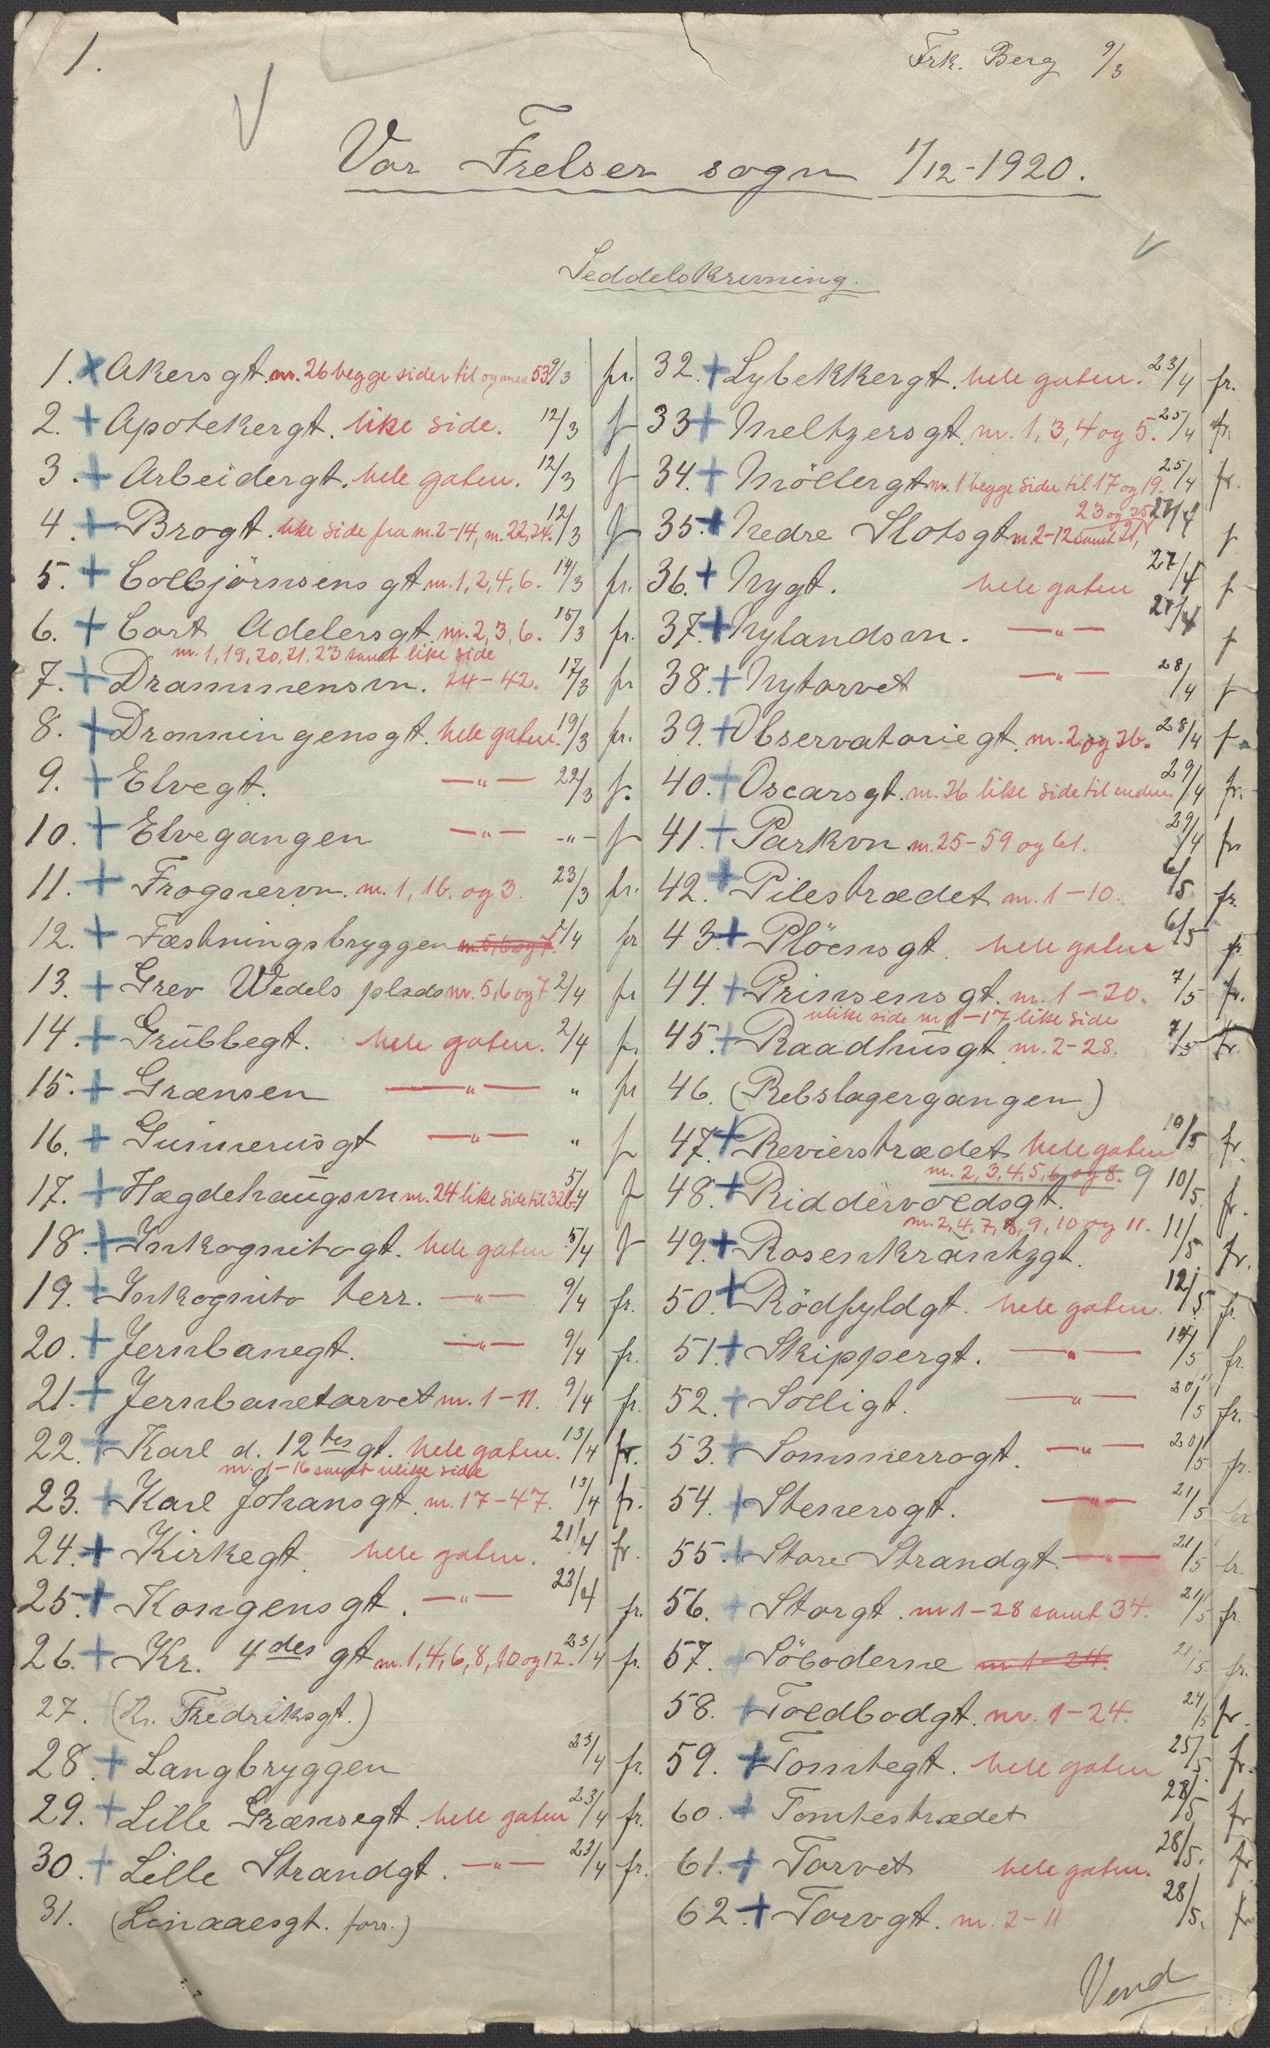 1.
Frk. Berg 9/3
Vor Frelser sogn 1/12-1920.
Seddelskrivning.
1. Akersgt. nr. 26 begge sider til og med 53. 9/3 fr.
2. + Apotekergt. like side. 12/3 f
3. + Arbeidergt. hele gaten. 12/3 f
4. + Brogt. like side fra nr. 2-14, nr. 22, 24. 12/3 f
5. + Colbjörnsens gt. nr. 1, 2, 4, 6. 14/3 fr.
6. + Cort Adelersgt. nr. 2, 3, 6. 15/3 fr.
nr. 1, 19, 20, 21, 23 samt like side
7. + Drammensvn. 24-42. 17/3 fr
8. + Dronningensgt. hele gaten. 19/3 fr.
9. + Elvegt. —"— 22/3 f.
10. + Elvegangen —"— -"- f
11. + Frognervn. nr. 1, 1b. og 3. 23/3 fr.
12. + Fæstningsbryggen nr. 5, 6 og 7. 2/4 fr
13. + Grev Wedels plads nr. 5, 6 og 7 2/4 fr
14. + Grübbegt. hele gaten. 2/4 fr.
15. + Grænsen —"— " fr
16. + Gunnerusgt —"— " f
17. + Hægdehaugsvn nr. 24 like side til 32b. 5/4 f
18. + Inkognitogt. hele gaten 5/4 f
19. + Inkognito terr. —"— 9/4 fr.
20. + Jernbanegt. —"— 9/4 fr.
21. + Jernbanetorvet nr. 1-11. 9/4 fr.
22. + Karl d. 12tes gt. hele gaten. 13/4 fr.
nr. 1-16 samt ulike side
23. + Karl Johansgt. nr. 17-47. 13/4 fr.
24. + Kirkegt. hele gaten. 21/4 fr.
25. + Kongensgt. —"— 23/4 fr.
26. + Kr. 4des gt nr. 1, 4, 6, 8, 10 og 12. 23/4 fr.
27. (Kr. Fredriksgt.)
28. + Langbryggen 23/4 fr.
29. + Lille Grænsegt. hele gaten 23/4 fr.
30. + Lille Strandgt. —"— 23/4 fr.
31. (Linaaesgt. forr.)
32. + Lybekkergt. hele gaten. 23/4 fr.
33 + Meltzersgt. nr. 1, 3, 4 og 5. 25/4 fr.
34. + Möllergt nr. 1 begge sider til 17 og 19. 25/4 fr.
23 og 25
35. + Nedre Slotsgt nr. 2-12 samt 21, 27/4 f
36. + Nygt. hele gaten 27/4 f
37. + Nylandsvn. —"— 27/4 f
38. + Nytorvet —"— 28/4 f
39. + Observatoriegt. nr. 2 og 2b. 28/4 f.
40. + Oscarsgt. nr. 26 like side til enden 29/4 fr.
41. + Parkvn nr. 25-59 og 61. 29/4 fr
42. + Pilestrædet nr. 1-10. 6/5 fr.
43. + Plöensgt. hele gaten 6/5 fr.
44. + Prinsensgt. nr. 1-20. 7/5 fr.
ulike side nr 1-17 like side
45. + Raadhusgt nr. 2-28. 7/5 fr.
46. (Rebslagergangen)
47. + Revierstrædet hele gaten 10/5 fr.
nr. 2, 3, 4, 5, 6, og 8. 9
48. + Riddervoldsgt. 10/5. fr.
nr. 2, 4, 7, 8, 9, 10 og 11.
49. + Rosenkrantzgt. 11/5 fr.
50. + Rödfyldgt. hele gaten. 12/5 fr.
51. + Skippergt. —"— 19/5 fr.
52. + Solligt. —"— 20/5 fr.
53. + Sommerrogt. —"— 20/5 fr.
54. + Stenersgt. —"— 21/5 fr
55. + Store Strandgt. —"— 21/5 fr.
56. + Storgt. nr 1-28 samt 34. 21/5 fr
57. + Söboderne nr 1-24. 21/5 fr.
58. + Toldbodgt. nr. 1-24. 24/5 fr.
59. + Tomtegt. hele gaten 25/5 fr.
60. + Tomtestrædet 28/5 fr
61. + Torvet hele gaten. 28/5. fr
62. + Torvgt. nr. 2-11 28/5. fr
Vend